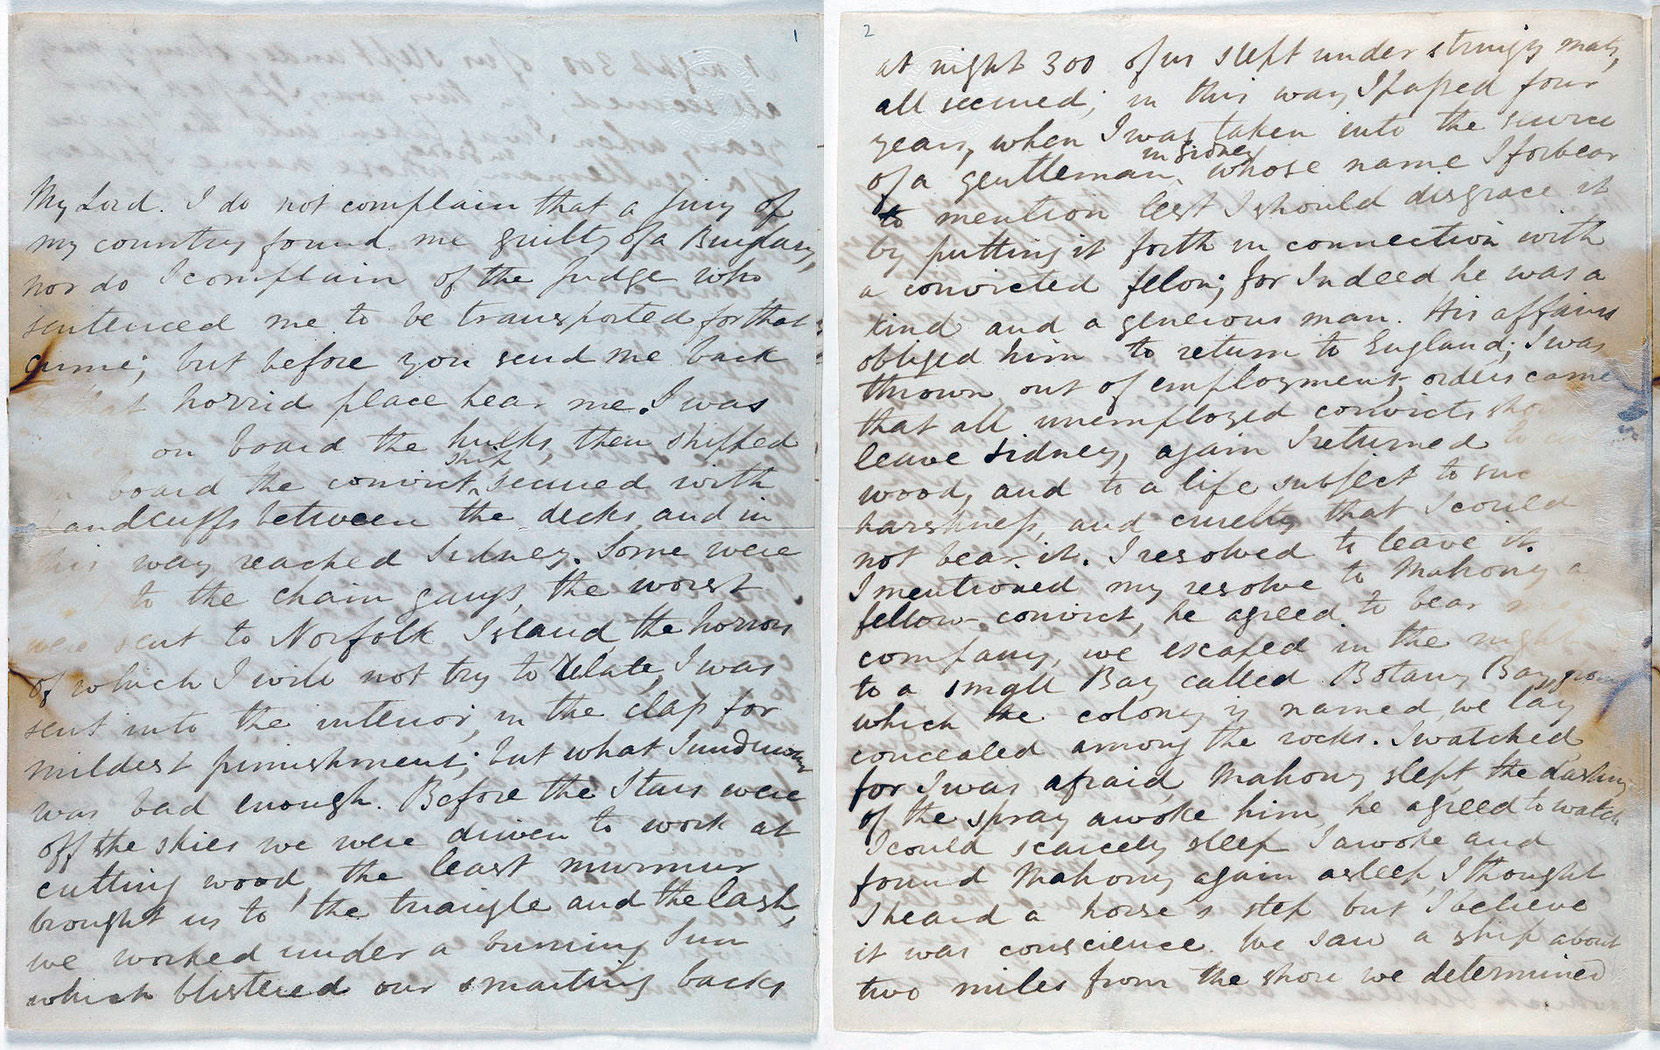 1
My Lord. I do not complain that a jury of
my country found me guilty of a Burglary,
nor do I complain of the Judge who
sentenced me to be transported for that
crime; but before you send me back
to that horrid place hear me. I was
on board the hulks, then shipped
on board the convict ship secured with
handcuffs between the decks and in
this way reached Sidney. Some were
to the chain gangs, the worst
were sent to Norfolk Island the horrors
of which I will not try to relate, I was
sent into the interior, in the class for
mildest punishment; but what I underwent
was bad enough. Before the Stars were
off the skies we were driven to work at
cutting wood, the least murmur
brought us to the triangle and the lash,
we worked under a burning Sun
which blistered our smarting backs
2
at night 300 of us slept under stringy mats,
all secured; in this way I passed four
years, when I was taken into the service
of a gentleman in Sidney whose name I forbear
to mention lest I should disgrace it
by putting it forth in connection with
a convicted felon; for Indeed he was a
kind and a generous man. His affairs
obliged him to return to England; I was
thrown out of employment, orders came
that all unemployed convicts sho
leave Sidney, again I returned to
wood, and to a life subject to suc
harshness, and cruelty that I could
not bear it. I resolved to leave it.
I mentioned my resolve to Mahony a
fellow-convict, he agreed to bear me
company, we escaped in the night
to a small Bay called Botany Bay, from
which the colony is named we lay
concealed among the rocks. I watched
for I was afraid, Mahony slept, the dashing
of the spray awoke him, he agreed to watch
I could scarcely sleep I awoke and
found Mahony again asleep, I thought
I heard a horse's step but I believe
it was conscience. We saw a ship about
two miles from the shore we determined